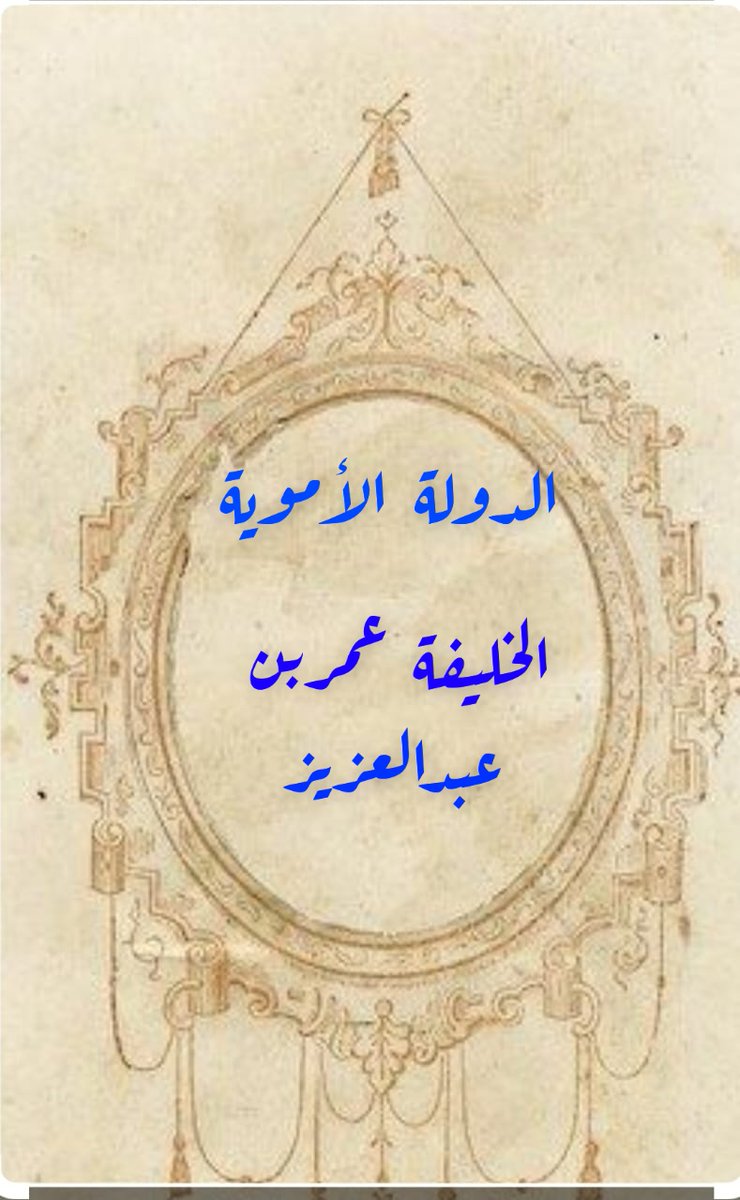 الدولة الأموية
الخليفة عمر بن
عبدالعزيز